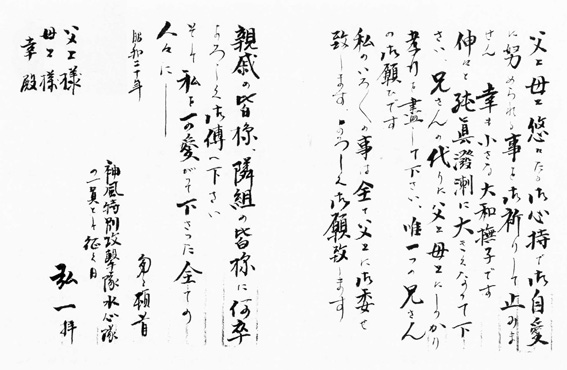 父上母上悠々たる御心持で御自愛
に努められる事を御祈りして止みま
せん 幸も小さき大和撫子です
伸々と純真溌溂に大きくなつて下
さい 兄さんの代りに父上母上にしつかり
孝行を盡して下さい、唯一つの兄さん
の御願ひです
私のいろ〱の事は全て父上に御委せ
致します よろしく御願致します
親戚の皆様、隣組の皆様に何卒
よろしく御傳へ下さい
そして私を愛がつて下さつた全ての
人々に——
昭和二十年
頓首
神風特別攻撃隊水心隊
の一員として征く日
弘一拝
父上様
母上様
幸殿